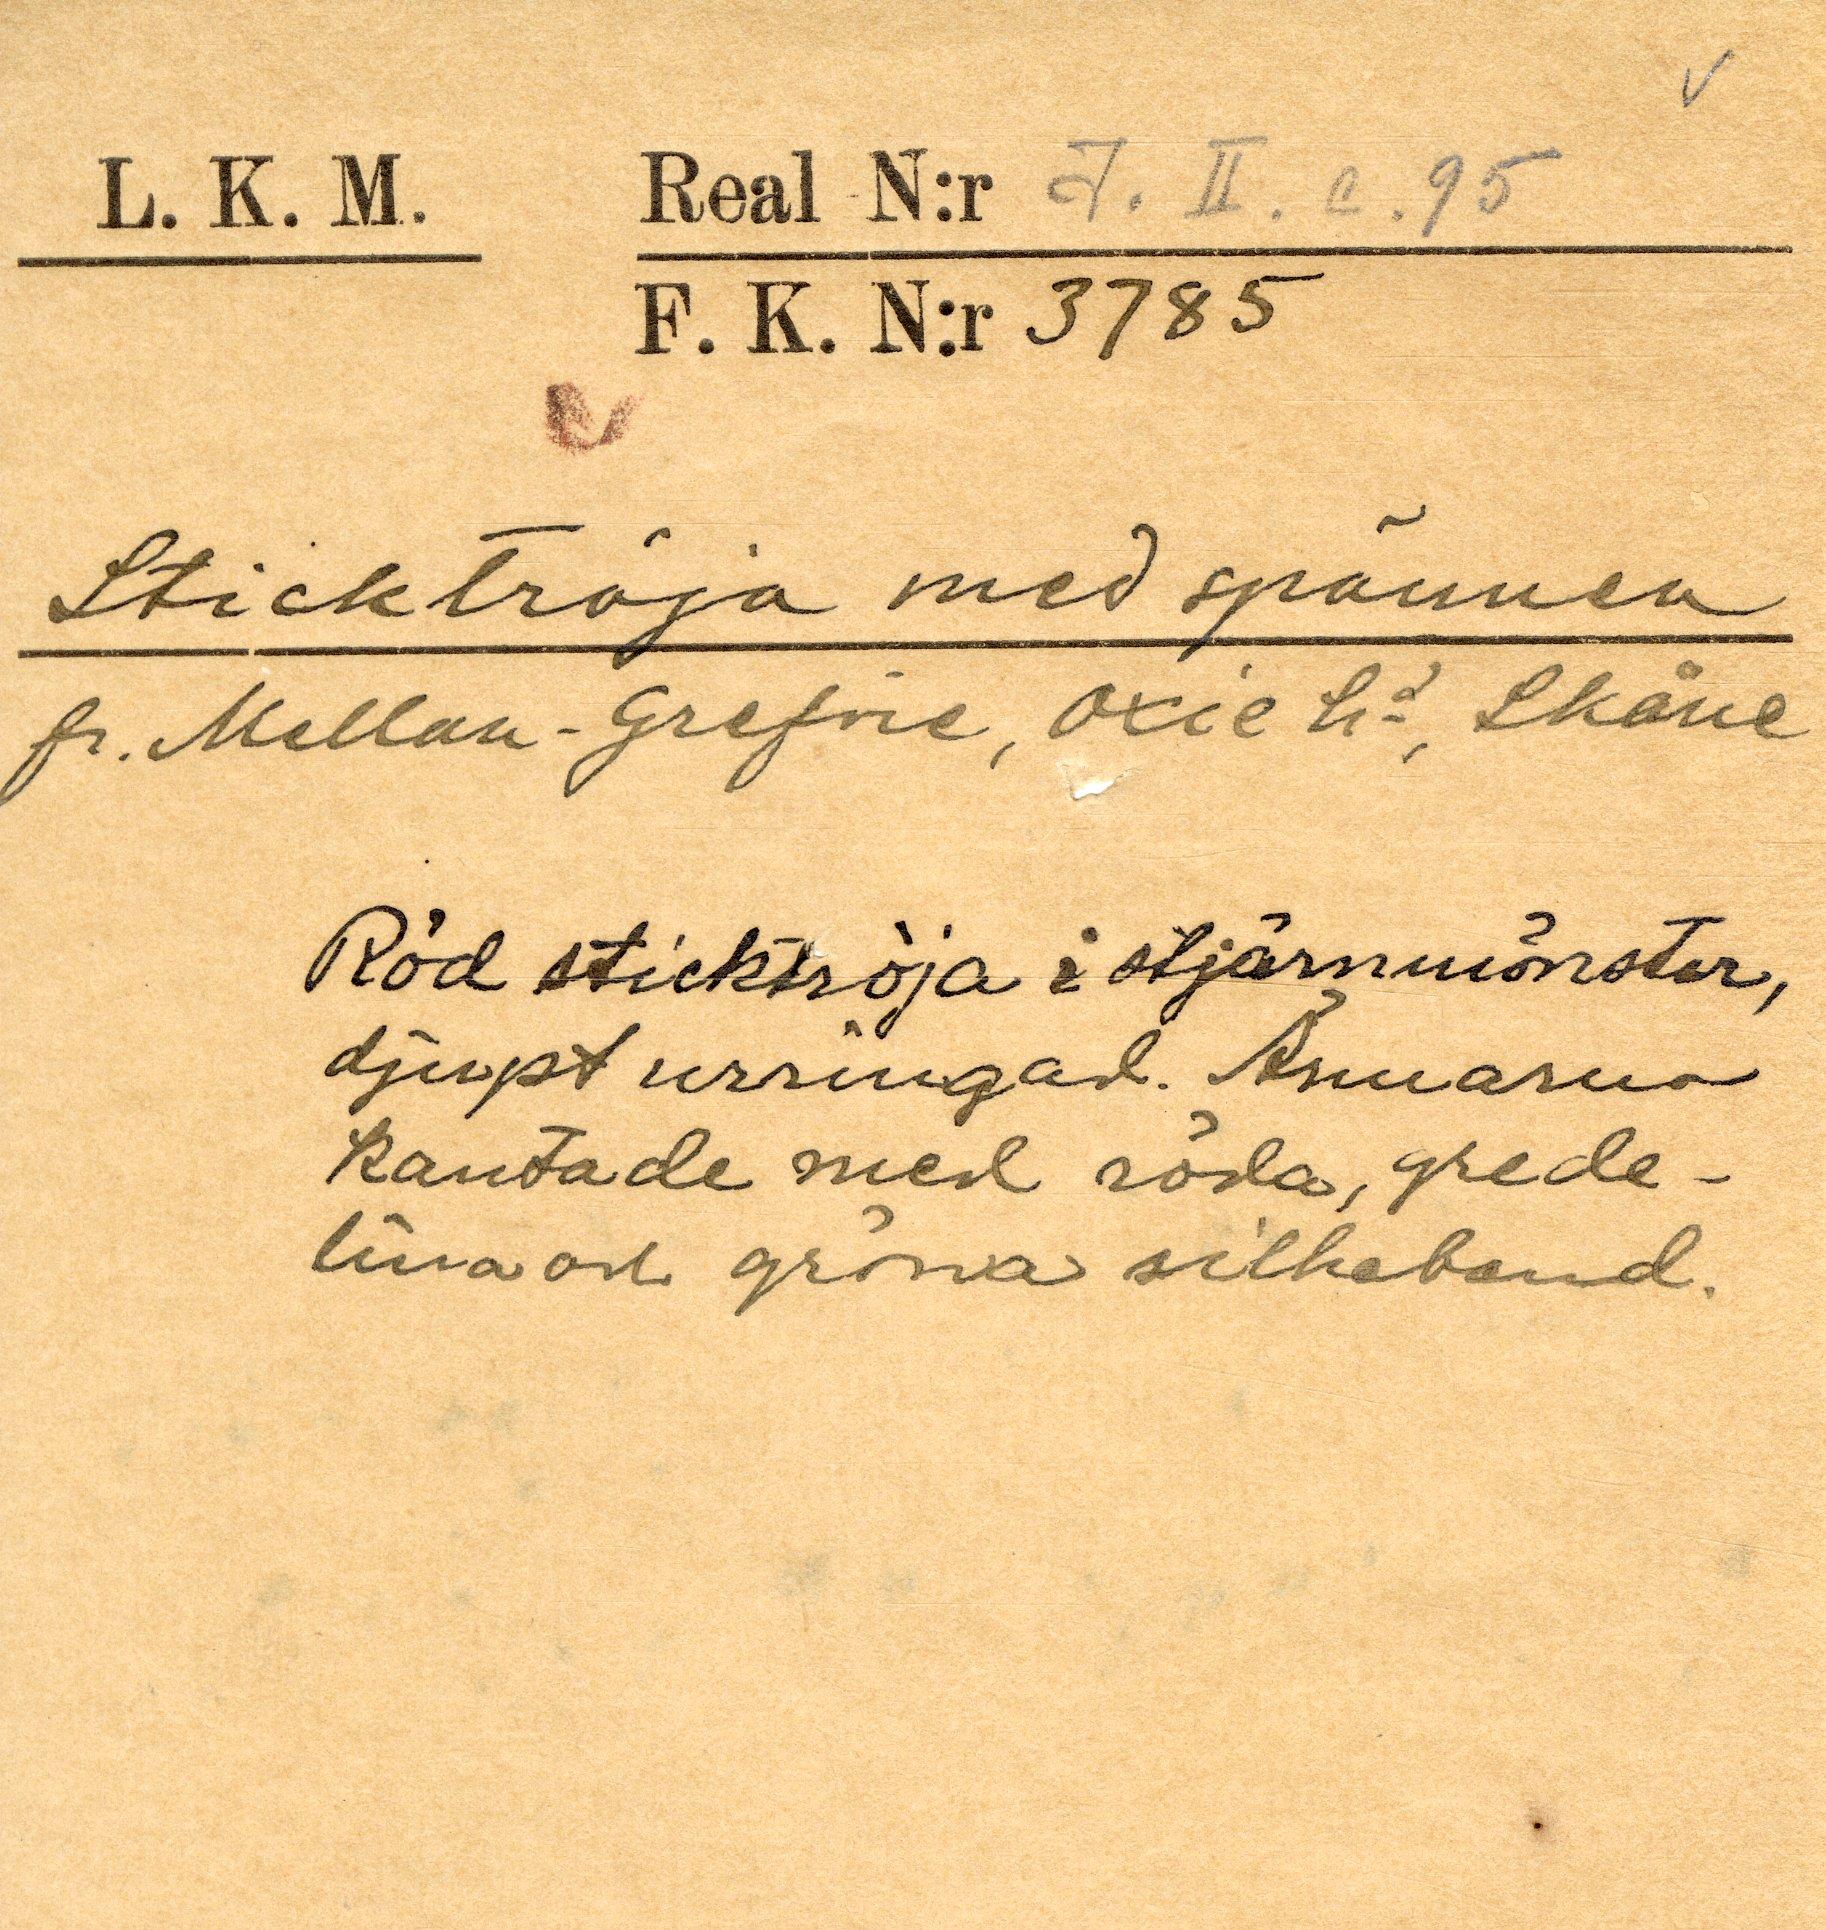 L. K. M. Real N:r A. II. c. 95
F. K. N:r 3785
Sticktröja med spännen
fr. Mellan-Grefvie, Oxie hd, Skåne
Röd sticktröja i stjärnmönster,
djupt urringad. Ärmarna
kantade med röda, grede-
lina och gröna silkeband.